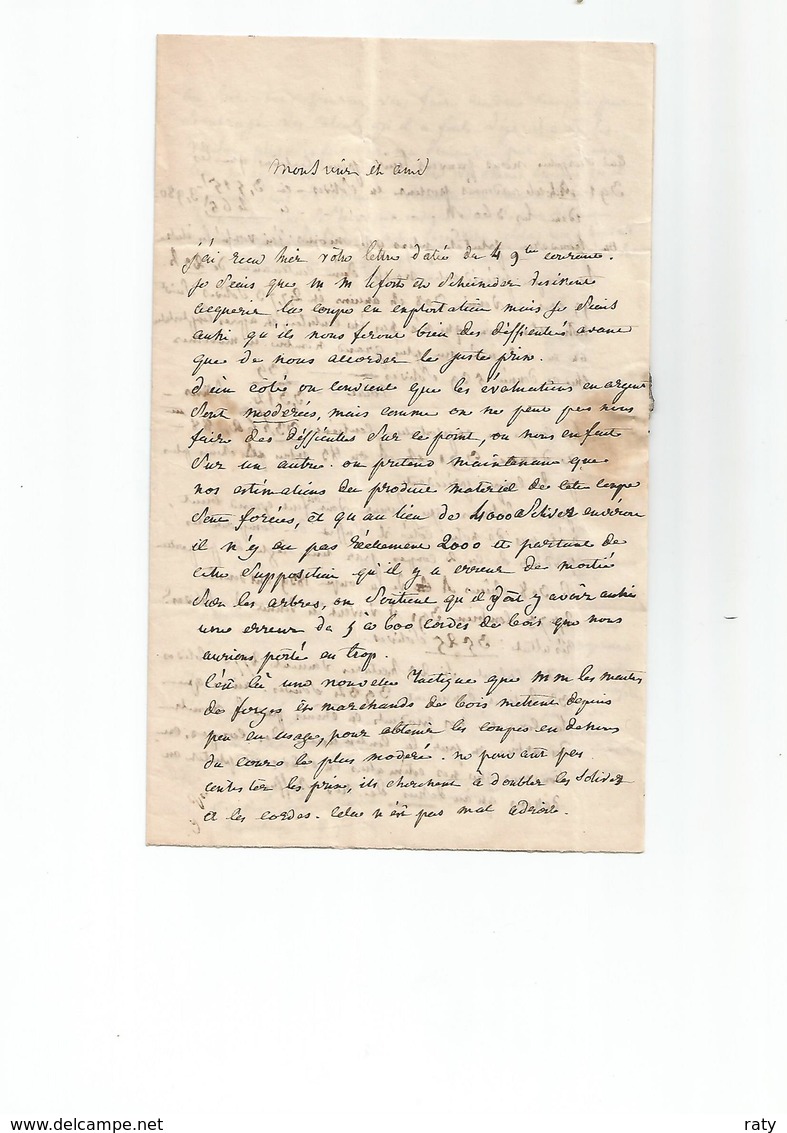 Monsieur et ami
j'ai recu hier vôtre lettre datée du 4 9bre courant.
je Scais que m m lefort et Schneider desirent
acquerir la coupe en exploitation mais je Scais
aussi qu'ils nous feront bien des difficultés avant
que de nous accorder le juste prix.
d'un coté on convient que les évaluations en argent
Sont moderées, mais comme on ne peut pas nous
faire des difficultés Sur ce point, on nous en fait
Sur un autre. on pretend maintenant que
nos estimations du produit materiel de cette coupe
Sont forcées, et qu'au lieu de 4000 Solives environ
il n'y en pas réellement 2000 et partant de
cette Supposition qu'il y a erreur de moitié
Sur les arbres, on Soutient qu'il doit y avoir aussi
une erreur de 5 à 600 cordes de bois que nous
aurions porté en trop.
C'est là une nouvelle tactique que m m les maitres
de forges et marchands de bois mettent depuis
peu en usage, pour obtenir les coupes en dehors
du cours le plus moderé. ne pouvant pas
contester les prix, ils cherchent à doubler les Solives
et les cordes. Cela n'est pas mal adroit.
delcampe.net
raty